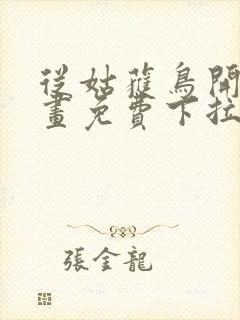 從姑獲鳥開
畫免費下拉
張金龍